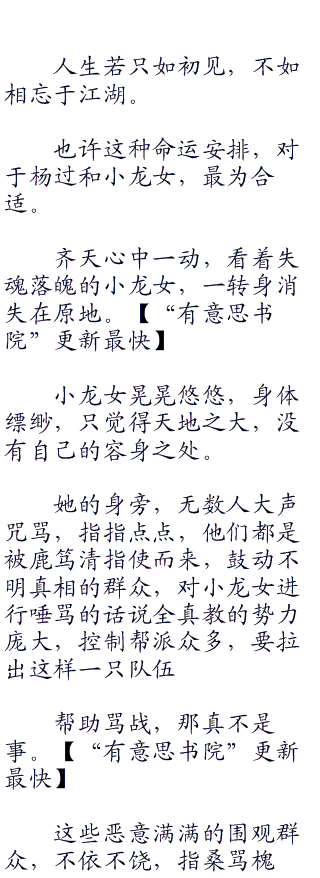 人生若只如初见，不如
相忘于江湖。
也许这种命运安排，对
于杨过和小龙女，最为合
适。
齐天心中一动，看着失
魂落魄的小龙女，一转身消
失在原地。【“有意思书
院”更新最快】
小龙女晃晃悠悠，身体
缥缈，只觉得天地之大，没
有自己的容身之处。
她的身旁，无数人大声
咒骂，指指点点，他们都是
被鹿笃清指使而来，鼓动不
明真相的群众，对小龙女进
行唾骂的话说全真教的势力
庞大，控制帮派众多，要拉
出这样一只队伍
帮助骂战，那真不是
事。【“有意思书院”更新
最快】
这些恶意满满的围观群
众，不依不饶，指桑骂槐